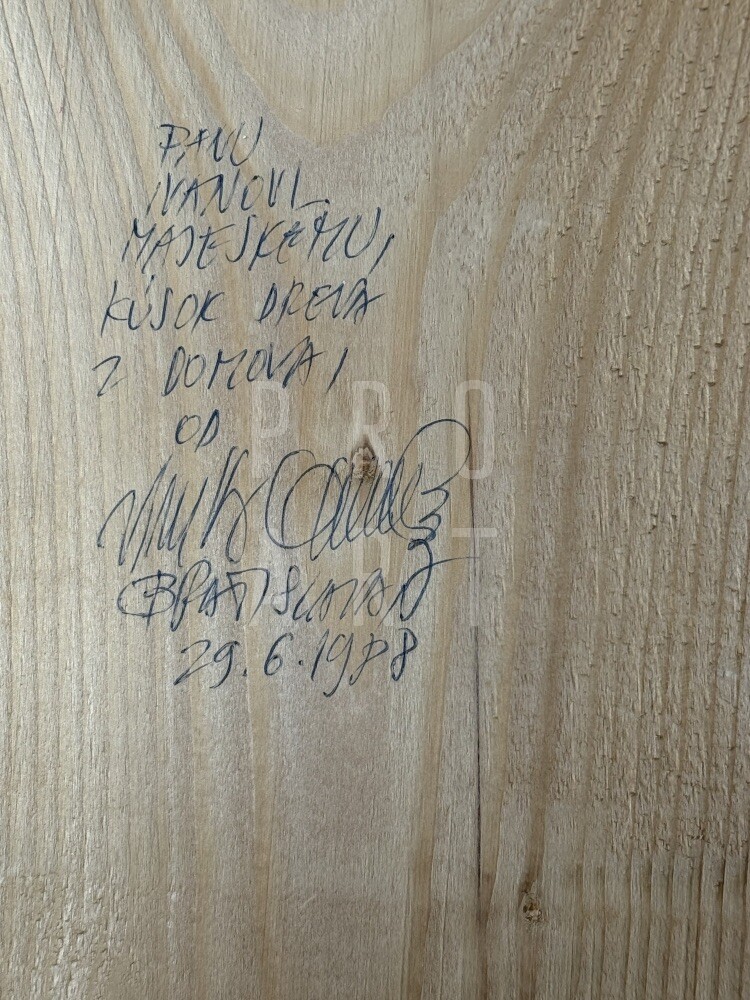 PANU
IVANOVI
MAJESKÉMU,
KÚSOK DREVA
Z DOMOVA,
OD
BRATISLAVA
29.6.1988
PRO